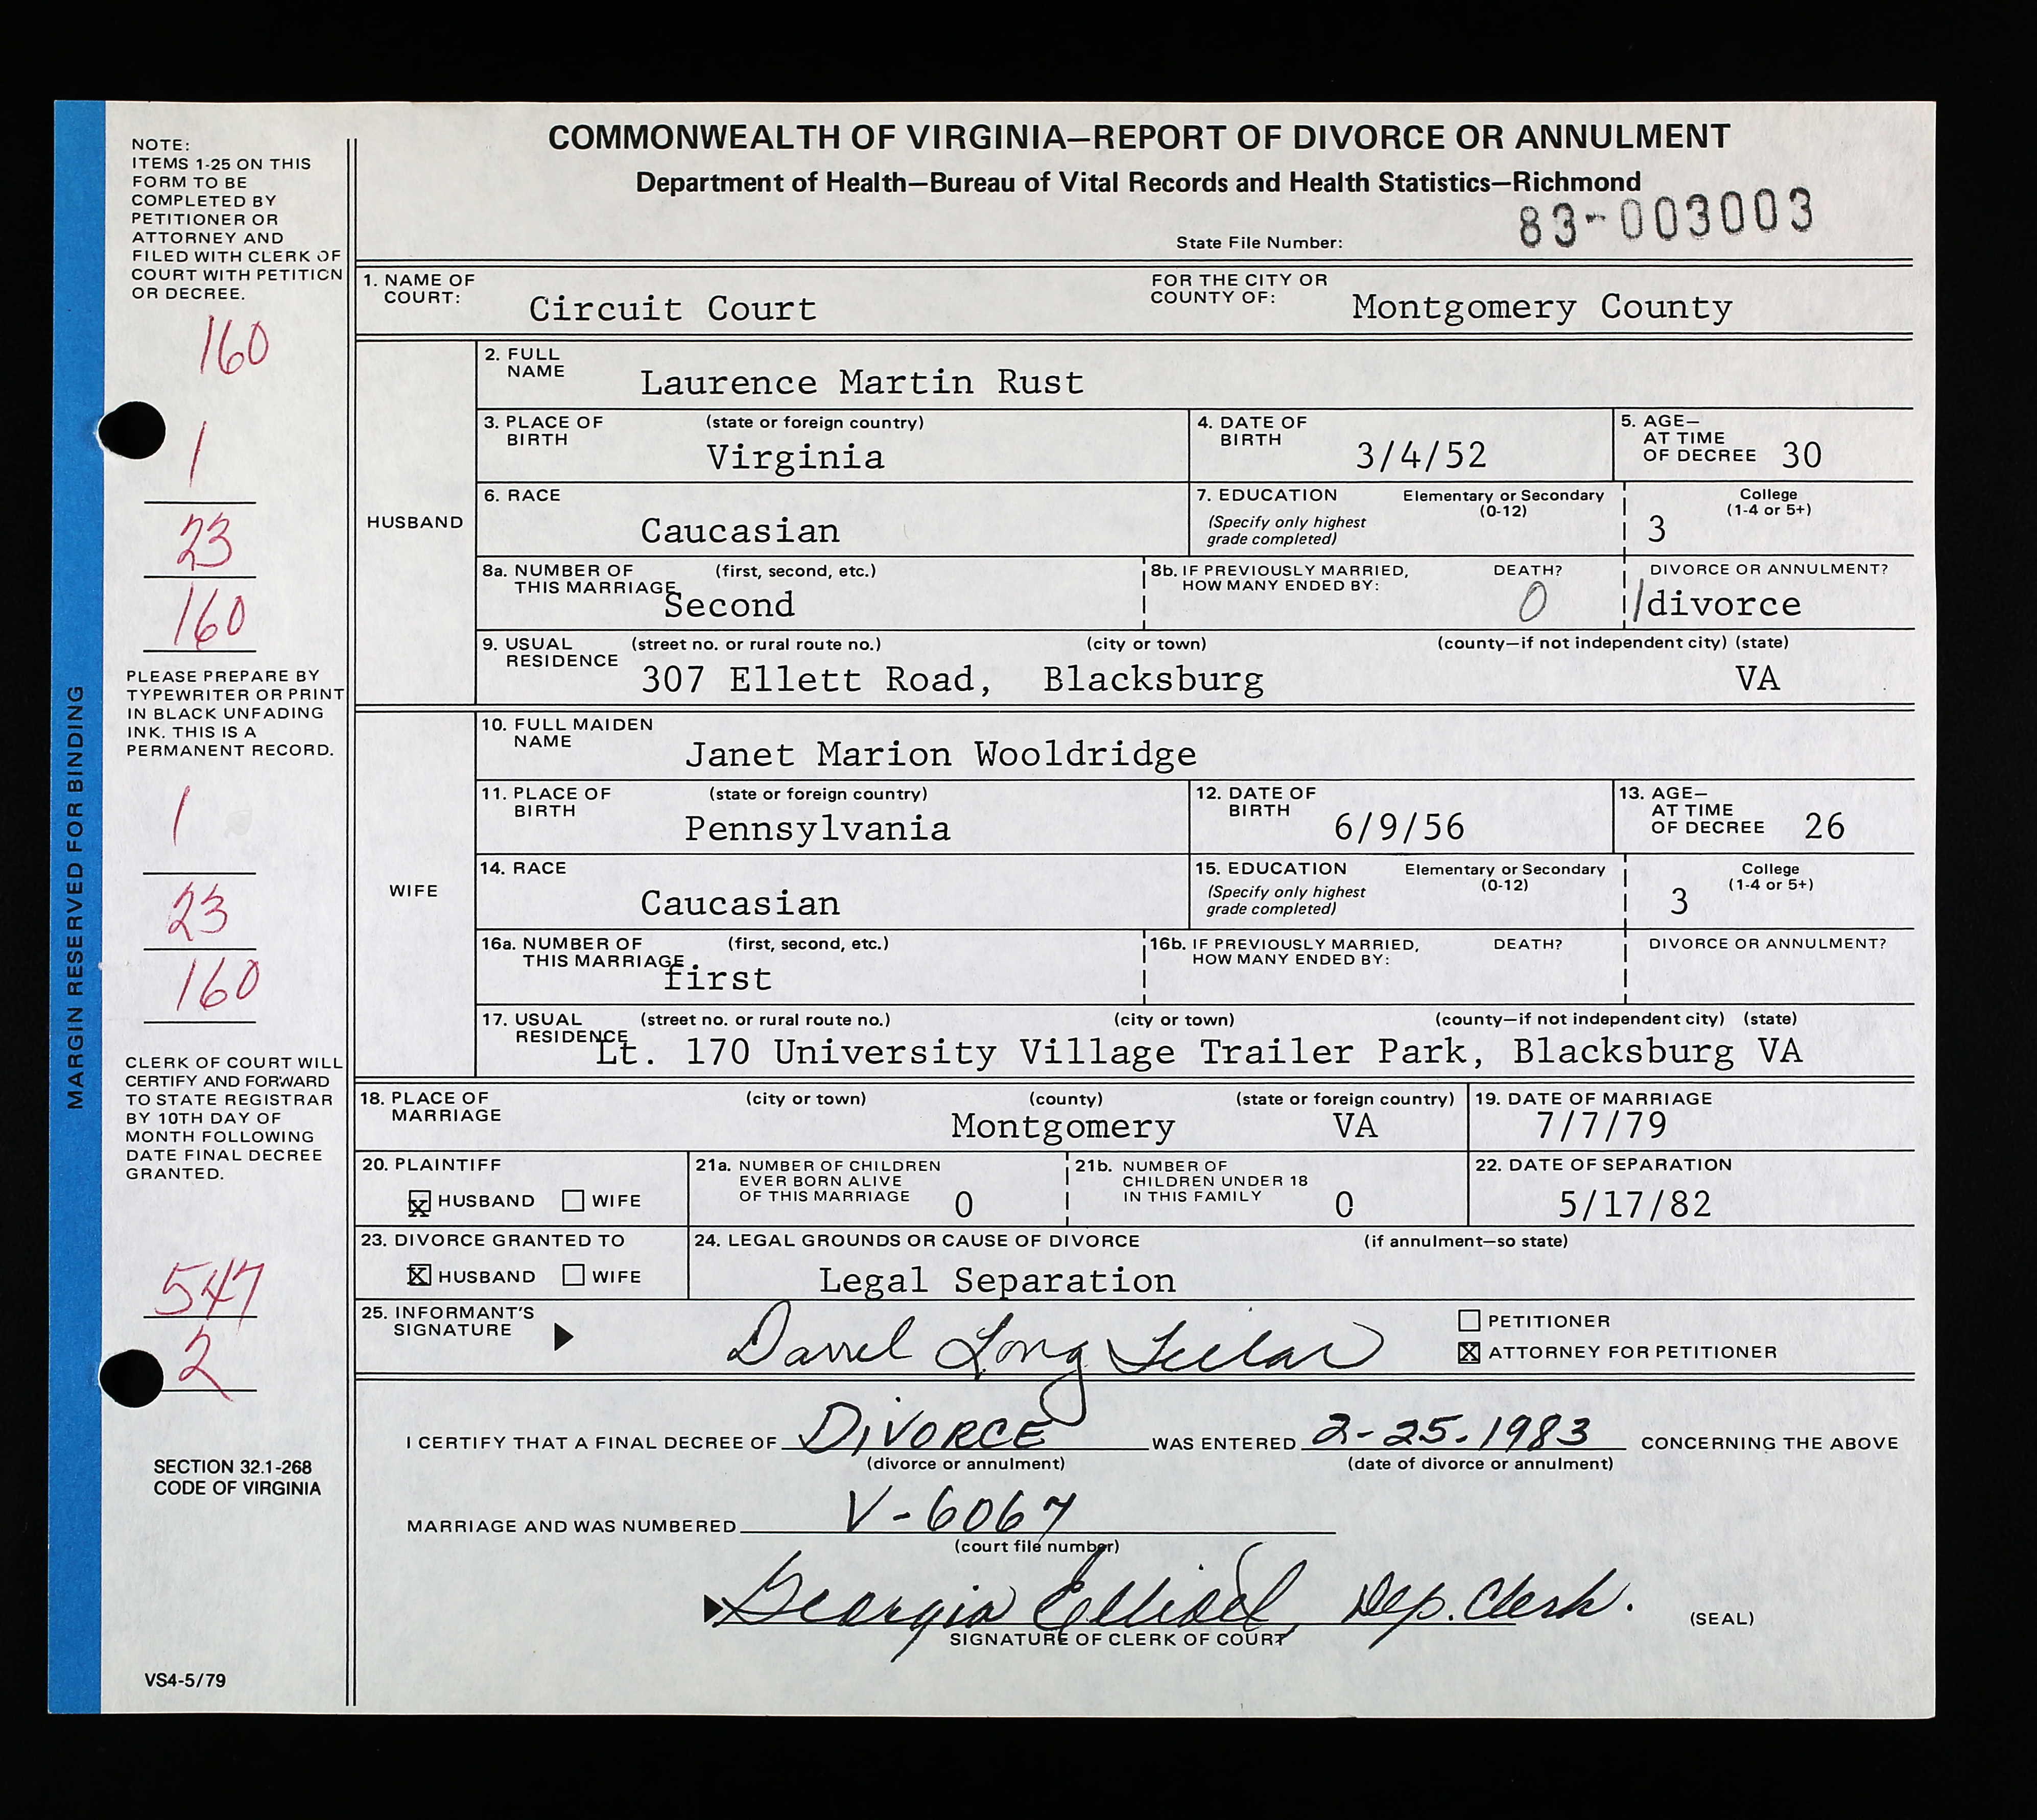 COMMONWEALTH OF VIRGINIA—REPORT OF DIVORCE OR ANNULMENT
Department of Health—Bureau of Vital Records and Health Statistics—Richmond
State File Number: 83-003003
NOTE:
ITEMS 1-25 ON THIS
FORM TO BE
COMPLETED BY
PETITIONER OR
ATTORNEY AND
FILED WITH CLERK OF
COURT WITH PETITION
OR DECREE.
160
1
23
160
PLEASE PREPARE BY
TYPEWRITER OR PRINT
IN BLACK UNFADING
INK. THIS IS A
PERMANENT RECORD.
1
23
160
CLERK OF COURT WILL
CERTIFY AND FORWARD
TO STATE REGISTRAR
BY 10TH DAY OF
MONTH FOLLOWING
DATE FINAL DECREE
GRANTED.
547
2
SECTION 32.1-268
CODE OF VIRGINIA
VS4-5/79
MARGIN RESERVED FOR BINDING
1. NAME OF COURT: Circuit Court FOR THE CITY OR COUNTY OF: Montgomery County
HUSBAND
2. FULL NAME Laurence Martin Rust
3. PLACE OF BIRTH (state or foreign country) Virginia 4. DATE OF BIRTH 3/4/52 5. AGE— AT TIME OF DECREE 30
6. RACE Caucasian 7. EDUCATION (Specify only highest grade completed) Elementary or Secondary (0-12) College (1-4 or 5+) 3
8a. NUMBER OF THIS MARRIAGE (first, second, etc.) Second 8b. IF PREVIOUSLY MARRIED, HOW MANY ENDED BY: DEATH? 0 DIVORCE OR ANNULMENT? 1 divorce
9. USUAL RESIDENCE (street no. or rural route no.) (city or town) (county—if not independent city) (state)
307 Ellett Road, Blacksburg VA
WIFE
10. FULL MAIDEN NAME Janet Marion Wooldridge
11. PLACE OF BIRTH (state or foreign country) Pennsylvania 12. DATE OF BIRTH 6/9/56 13. AGE— AT TIME OF DECREE 26
14. RACE Caucasian 15. EDUCATION (Specify only highest grade completed) Elementary or Secondary (0-12) College (1-4 or 5+) 3
16a. NUMBER OF THIS MARRIAGE (first, second, etc.) first 16b. IF PREVIOUSLY MARRIED, HOW MANY ENDED BY: DEATH? DIVORCE OR ANNULMENT?
17. USUAL RESIDENCE (street no. or rural route no.) (city or town) (county—if not independent city) (state)
Lt. 170 University Village Trailer Park, Blacksburg VA
18. PLACE OF MARRIAGE (city or town) (county) Montgomery (state or foreign country) VA 19. DATE OF MARRIAGE 7/7/79
20. PLAINTIFF X HUSBAND WIFE 21a. NUMBER OF CHILDREN EVER BORN ALIVE OF THIS MARRIAGE 0 21b. NUMBER OF CHILDREN UNDER 18 IN THIS FAMILY 0 22. DATE OF SEPARATION 5/17/82
23. DIVORCE GRANTED TO X HUSBAND WIFE 24. LEGAL GROUNDS OR CAUSE OF DIVORCE (if annulment—so state) Legal Separation
25. INFORMANT'S SIGNATURE Long PETITIONER
X ATTORNEY FOR PETITIONER
I CERTIFY THAT A FINAL DECREE OF DIVORCE WAS ENTERED 2-25-1983 CONCERNING THE ABOVE
(divorce or annulment) (date of divorce or annulment)
MARRIAGE AND WAS NUMBERED V-6067
(court file number)
Georgia Dep. Clerk.
SIGNATURE OF CLERK OF COURT (SEAL)